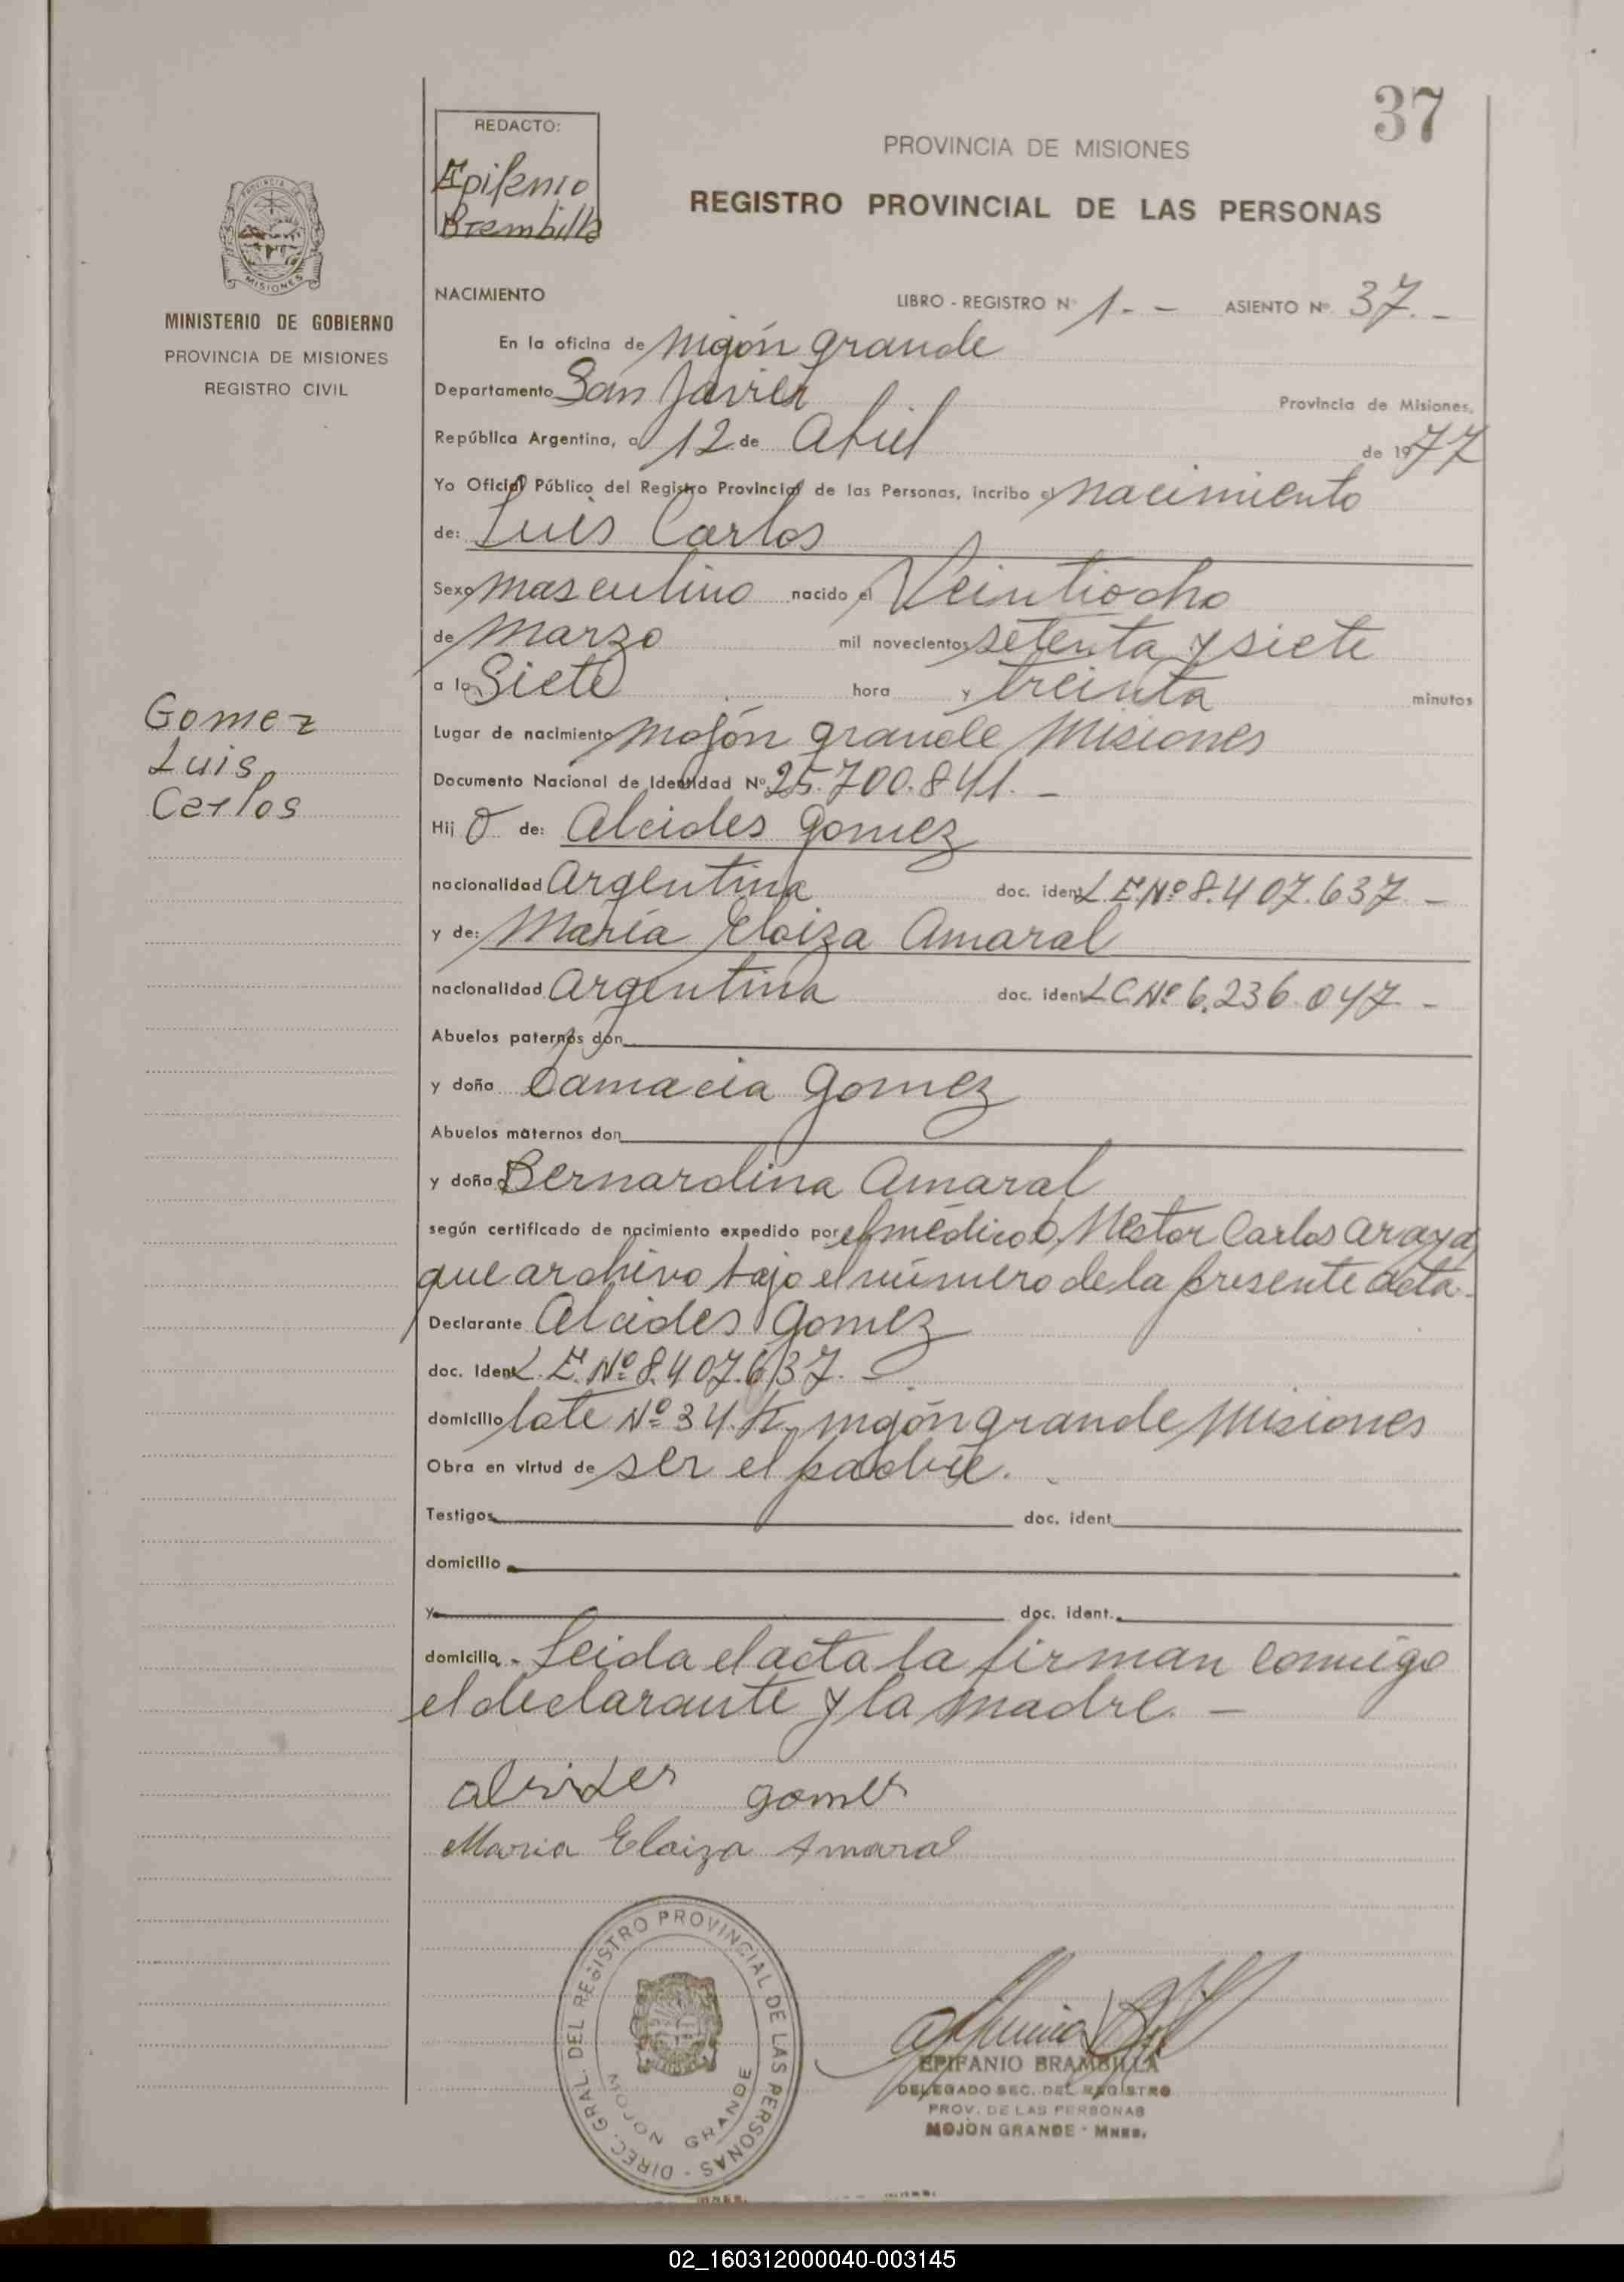 37
REDACTO:
Epifenio
Brembilla
PROVINCIA DE MISIONES
REGISTRO PROVINCIAL DE LAS PERSONAS
PROVINCIA DE
MISIONES
MINISTERIO DE GOBIERNO
PROVINCIA DE MISIONES
REGISTRO CIVIL
NACIMIENTO LIBRO - REGISTRO Nº 1. - - ASIENTO Nº. 37. -
En la oficina de Mojón grande
Departamento San Javier Provincia de Misiones,
República Argentina, a 12 de Abril de 1977
Yo Oficial Público del Registro Provincial de las Personas, incribo el nacimiento
de: Luis Carlos
Sexo masculino nacido el Veintiocho
de Marzo mil novecientos setenta y siete
a la Siete hora y treinta minutos
Gomez
Luis
Carlos
Lugar de nacimiento Mojón grande Misiones
Documento Nacional de Identidad Nº 25.700.841. -
Hij o de: Alcides Gomez
nacionalidad Argentina doc. ident L.E.Nº 8.407.637 -
y de: María Eloiza Amaral
nacionalidad Argentina doc. ident L.C.Nº 6.236.047 -
Abuelos paternos don
y doña Camacia Gomez
Abuelos maternos don
y doña Bernardina Amaral
según certificado de nacimiento expedido por el médico D, Nestor Carlos Araya,
que archivo bajo el número de la presente acta.
Declarante Alcides Gomez
doc. Ident L.E. Nº 8.407.637. -
domicilio lote Nº 34. Mojón grande Misiones
Obra en virtud de ser el padre.
Testigos doc. ident
domicilio
y doc. ident.
domicilio - Leida el acta la firman conmigo
el declarante y la madre. -
alcides gomes
Maria Eloiza Amaral
DIREC. GRAL. DEL REGISTRO PROVINCIAL DE LAS PERSONAS -
MOJON GRANDE
EPIFANIO BRAMBILLA
DELEGADO SEC. DEL REGISTRO
PROV. DE LAS PERSONAS
MOJON GRANDE - MNES.
02_160312000040-003145